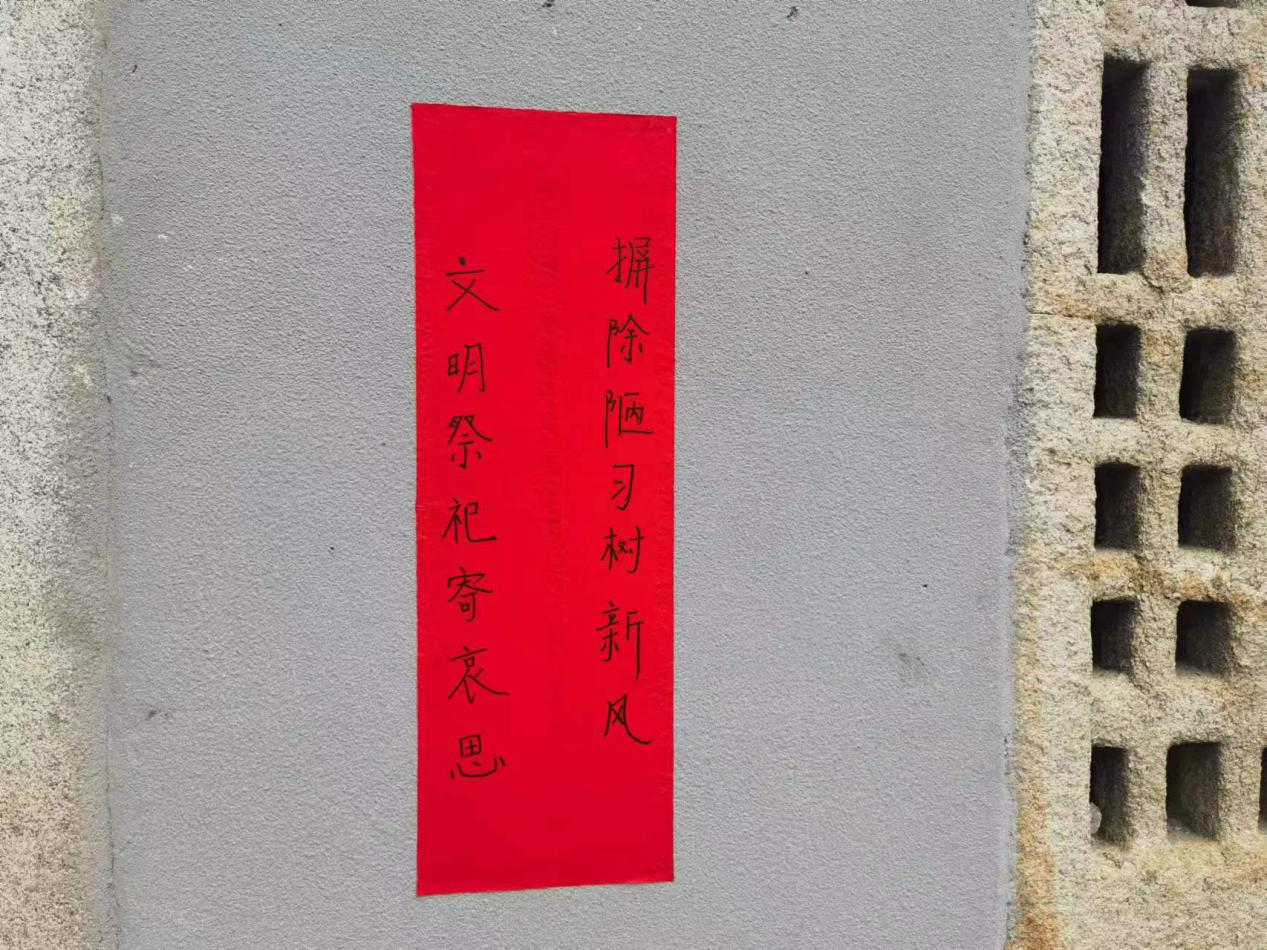 摒除陋习树新风
文明祭祀寄哀思